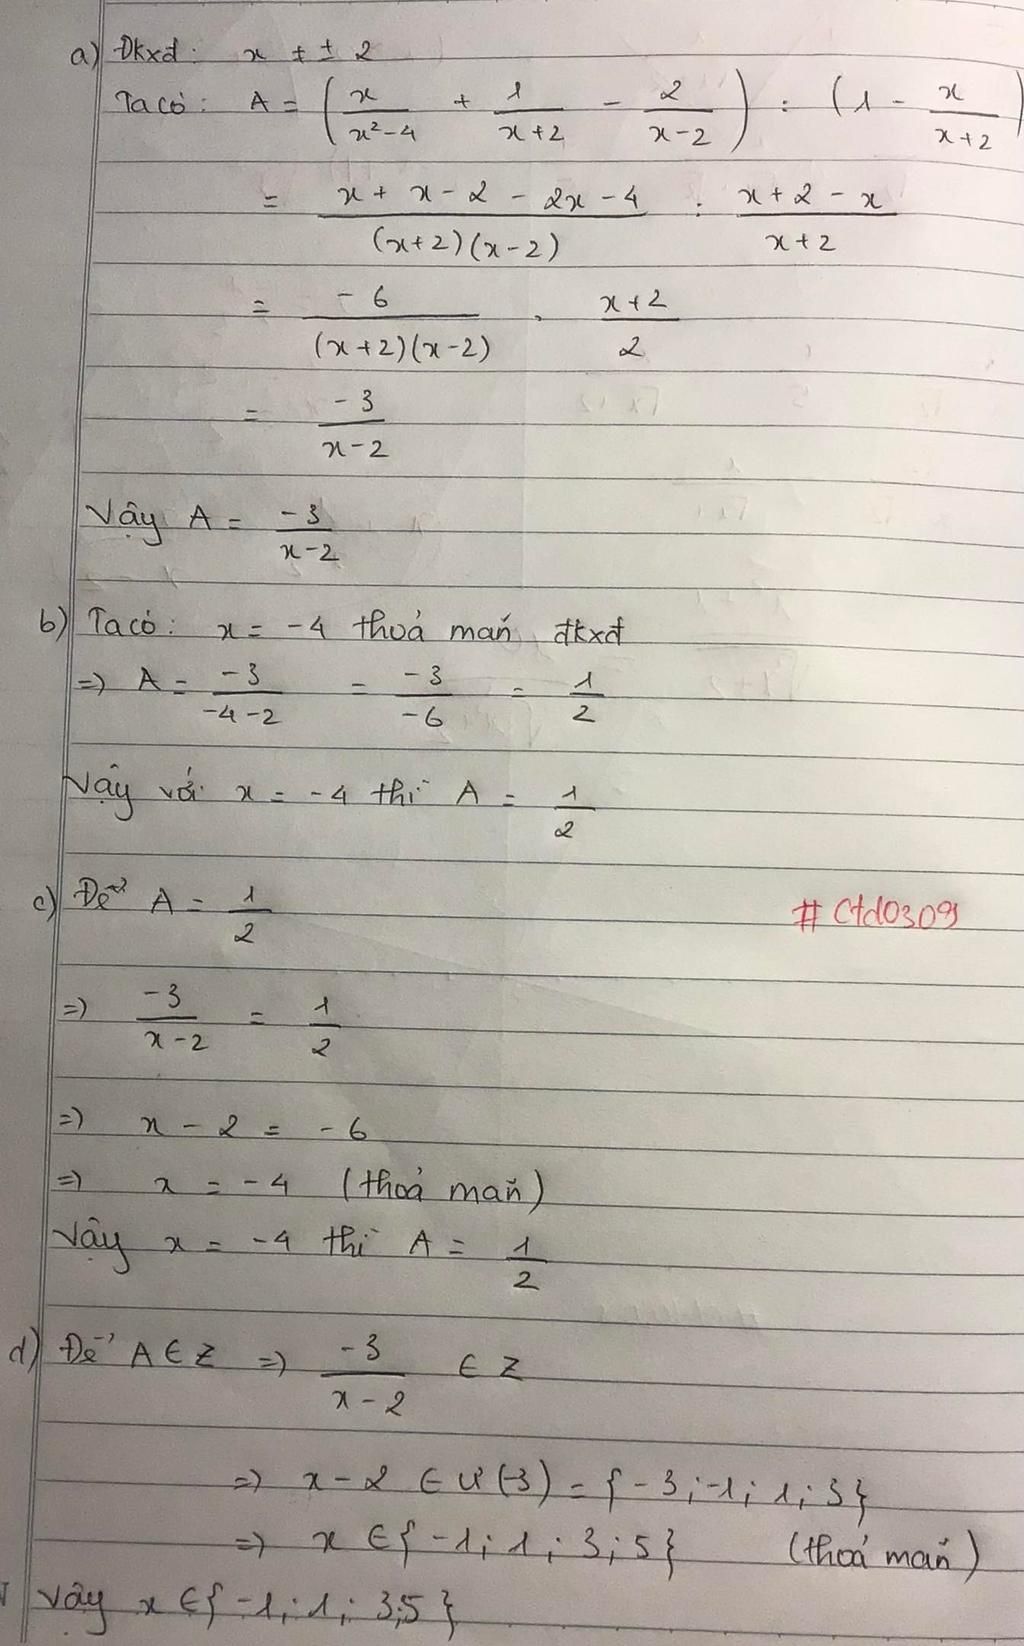 a) Đkxđ: x ≠ ± 2
Ta có: A = (x/(x²-4) + 1/(x+2) - 2/(x-2)) : (1 - x/(x+2))
= (x + x - 2 - 2x - 4)/((x+2)(x-2)) : (x + 2 - x)/(x+2)
= -6/((x+2)(x-2)) . (x+2)/2
= -3/(x-2)
Vậy A = -3/(x-2)
b) Ta có: x = -4 thoả mãn đkxđ
=> A = -3/(-4-2) = -3/-6 = 1/2
Vậy với x = -4 thì A = 1/2
c) Để A = 1/2
#Ctd0309
=> -3/(x-2) = 1/2
=> x - 2 = -6
=> x = -4 (thoả mãn)
Vậy x = -4 thì A = 1/2
d) Để A ∈ Z => -3/(x-2) ∈ Z
=> x - 2 ∈ Ư(-3) = {-3; -1; 1; 3}
=> x ∈ {-1; 1; 3; 5} (thoả mãn)
Vậy x ∈ {-1; 1; 3; 5}